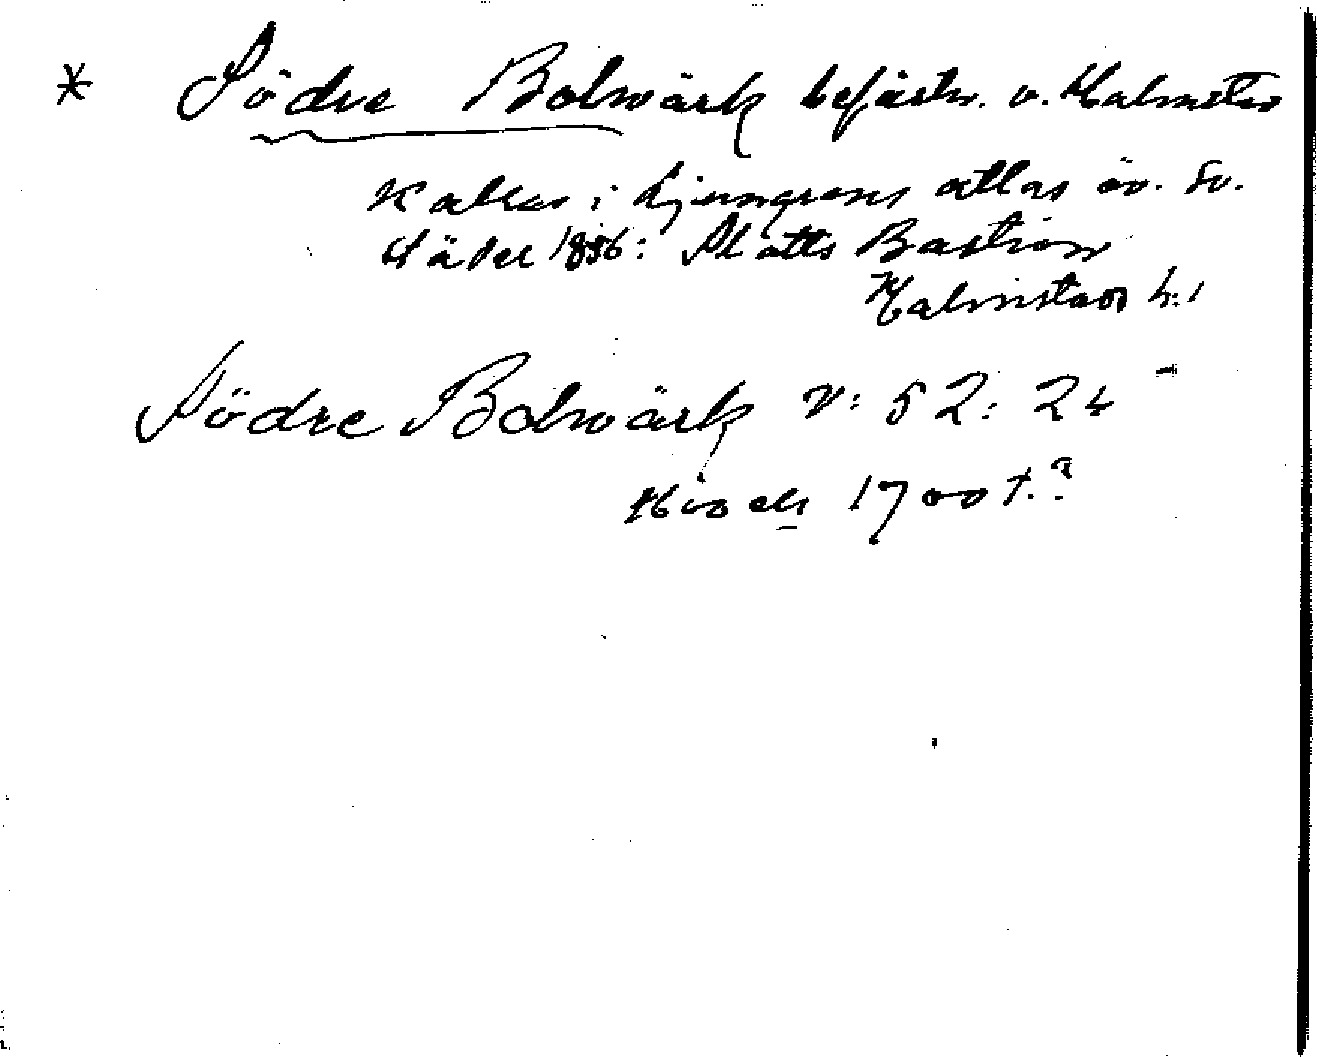 * Södre Bolwärk befästn. v. Halmstad
Kallas i Ljungrens atlas öv. Sv.
städer 1856: Slotts Bastion
Halmstad h:1
Södre Bolwärk V: 52: 24
1700 t.?